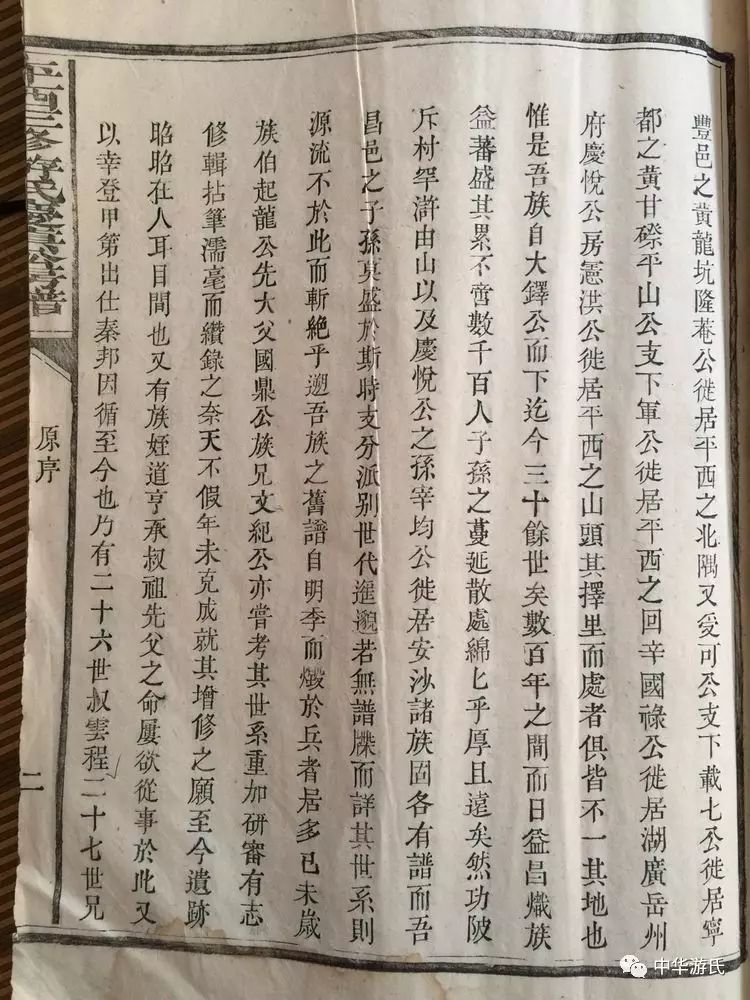 豐邑之黃龍坑隆菴公徙居平西之北隅又受可公支下載七公徙居寧
都之黃甘磜平山公支下軍公徙居平西之回辛國祿公徙居湖廣岳州
府慶悅公房憲洪公徙居平西之山頭其擇里而處者俱皆不一其地也
惟是吾族自大鐸公而下迄今三十餘世矣數百年之間而日益昌熾族
益蕃盛其累不啻數千百人子孫之蔓延散處綿匕乎厚且遠矣然功陂
斥村罕滸由山以及慶悅公之孫宰均公徙居安沙諸族固各有譜而吾
昌邑之子孫莫盛於斯時支分派別世代遥邈若無譜牒而詳其世系則
源流不於此而斬絶乎遡吾族之舊譜自明季而燬於兵者居多已未歲
族伯起龍公先大父國鼎公族兄文紀公亦嘗考其世系重加研審有志
修輯拈筆濡毫而纘錄之奈天不假年未克成就其增修之願至今遺跡
昭昭在人耳目間也又有族姪道亨承叔祖先父之命屢欲從事於此又
以幸登甲第出仕秦邦因循至今也乃有二十六世叔雲程二十七世兄
平西三修游氏
原序
二
中华游氏